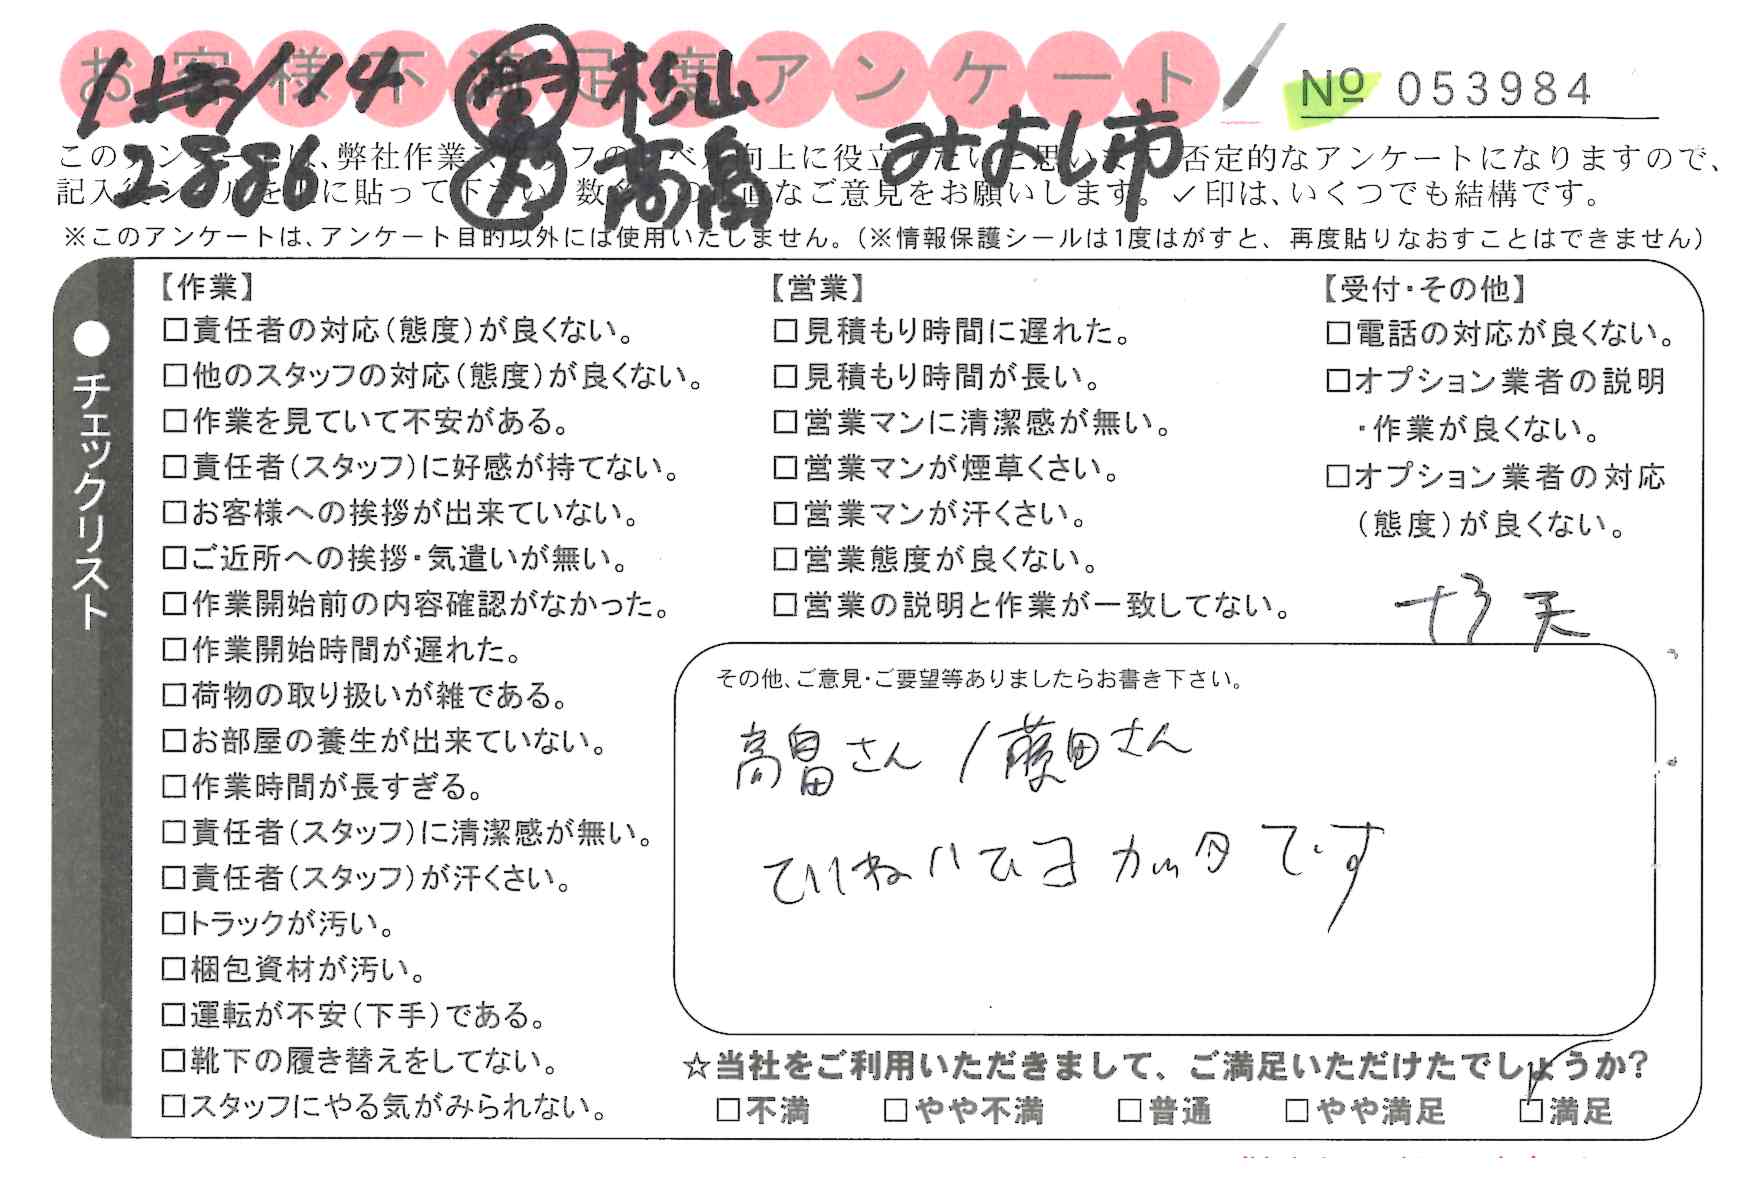 お客様不満足度アンケート
No 053984
1/14 営 杉山
2886 高畠 みよし市
このアンケートは、弊社作業スタッフのレベル向上に役立てたいと思います。否定的なアンケートになりますので、
記入後シールを上に貼って下さい。数多くの正直なご意見をお願いします。✓印は、いくつでも結構です。
※このアンケートは、アンケート目的以外には使用いたしません。(※情報保護シールは1度はがすと、再度貼りなおすことはできません)
●チェックリスト
【作業】
□責任者の対応(態度)が良くない。
□他のスタッフの対応(態度)が良くない。
□作業を見ていて不安がある。
□責任者(スタッフ)に好感が持てない。
□お客様への挨拶が出来ていない。
□ご近所への挨拶・気遣いが無い。
□作業開始前の内容確認がなかった。
□作業開始時間が遅れた。
□荷物の取り扱いが雑である。
□お部屋の養生が出来ていない。
□作業時間が長すぎる。
□責任者(スタッフ)に清潔感が無い。
□責任者(スタッフ)が汗くさい。
□トラックが汚い。
□梱包資材が汚い。
□運転が不安(下手)である。
□靴下の履き替えをしてない。
□スタッフにやる気がみられない。
【営業】
□見積もり時間に遅れた。
□見積もり時間が長い。
□営業マンに清潔感が無い。
□営業マンが煙草くさい。
□営業マンが汗くさい。
□営業態度が良くない。
□営業の説明と作業が一致してない。
【受付・その他】
□電話の対応が良くない。
□オプション業者の説明
・作業が良くない。
□オプション業者の対応
(態度)が良くない。
その他、ご意見・ご要望等ありましたらお書き下さい。
高畠さん/藤田さん
です
☆当社をご利用いただきまして、ご満足いただけたでしょうか?
□不満 □やや不満 □普通 □やや満足 ☑満足